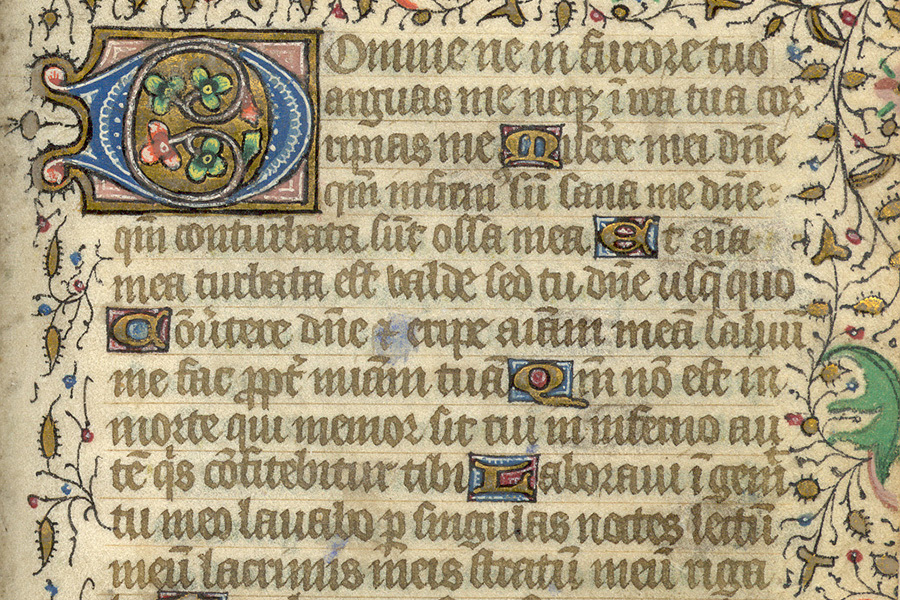 Domine ne in furore tuo
arguas me neqz ĩ ira tua cor
ripias me Miſere mei dñe
qm̃ infirm' ſũ ſana me dñe:
qm̃ conturbata ſũt oſſa mea Et aĩa
mea turbata eſt valde ſed tu dñe uſq̃ quo
Cõu̾tere dñe ⁊ eripe aĩam meã ſaluũ
me fac ꝓpt̾ miãm tuã Qm̃ nõ eſt in
morte qui memor ſit tui in inferno au
tẽ q̾s cõfitebitur tibi Laboraui ĩ gemĩ
tu meo lauabo ꝑ ſingulas noctes lectũ
meũ lacrimis meis ſtratũ meũ riga